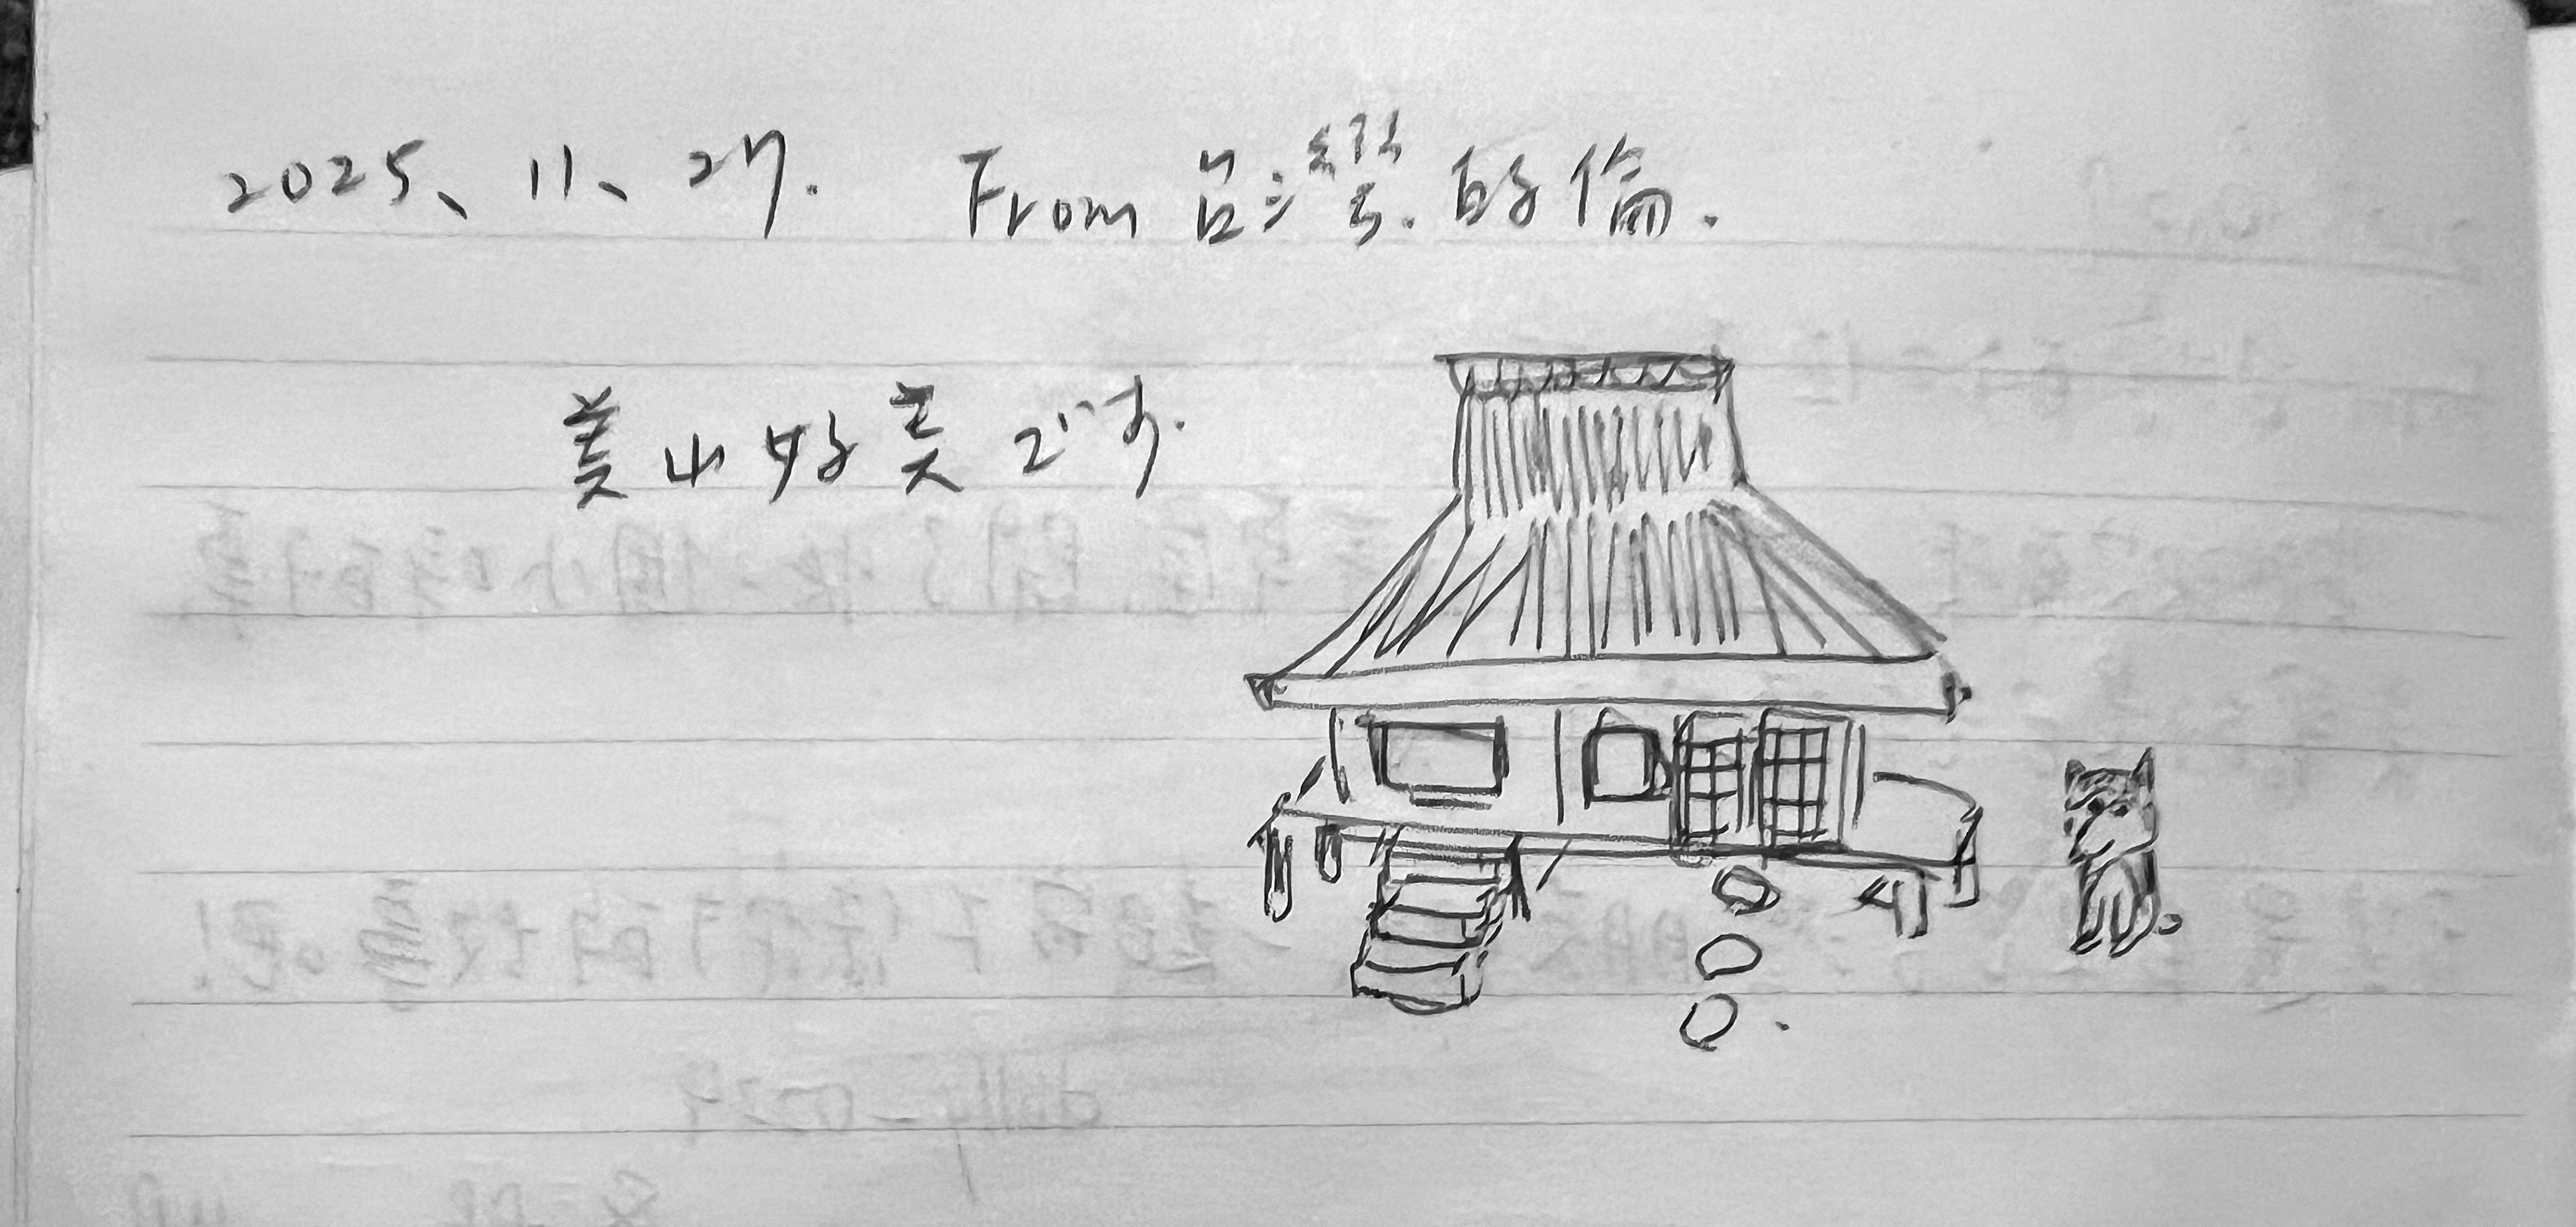 2025、11、27. From 台灣.的倫.
美山好美です.